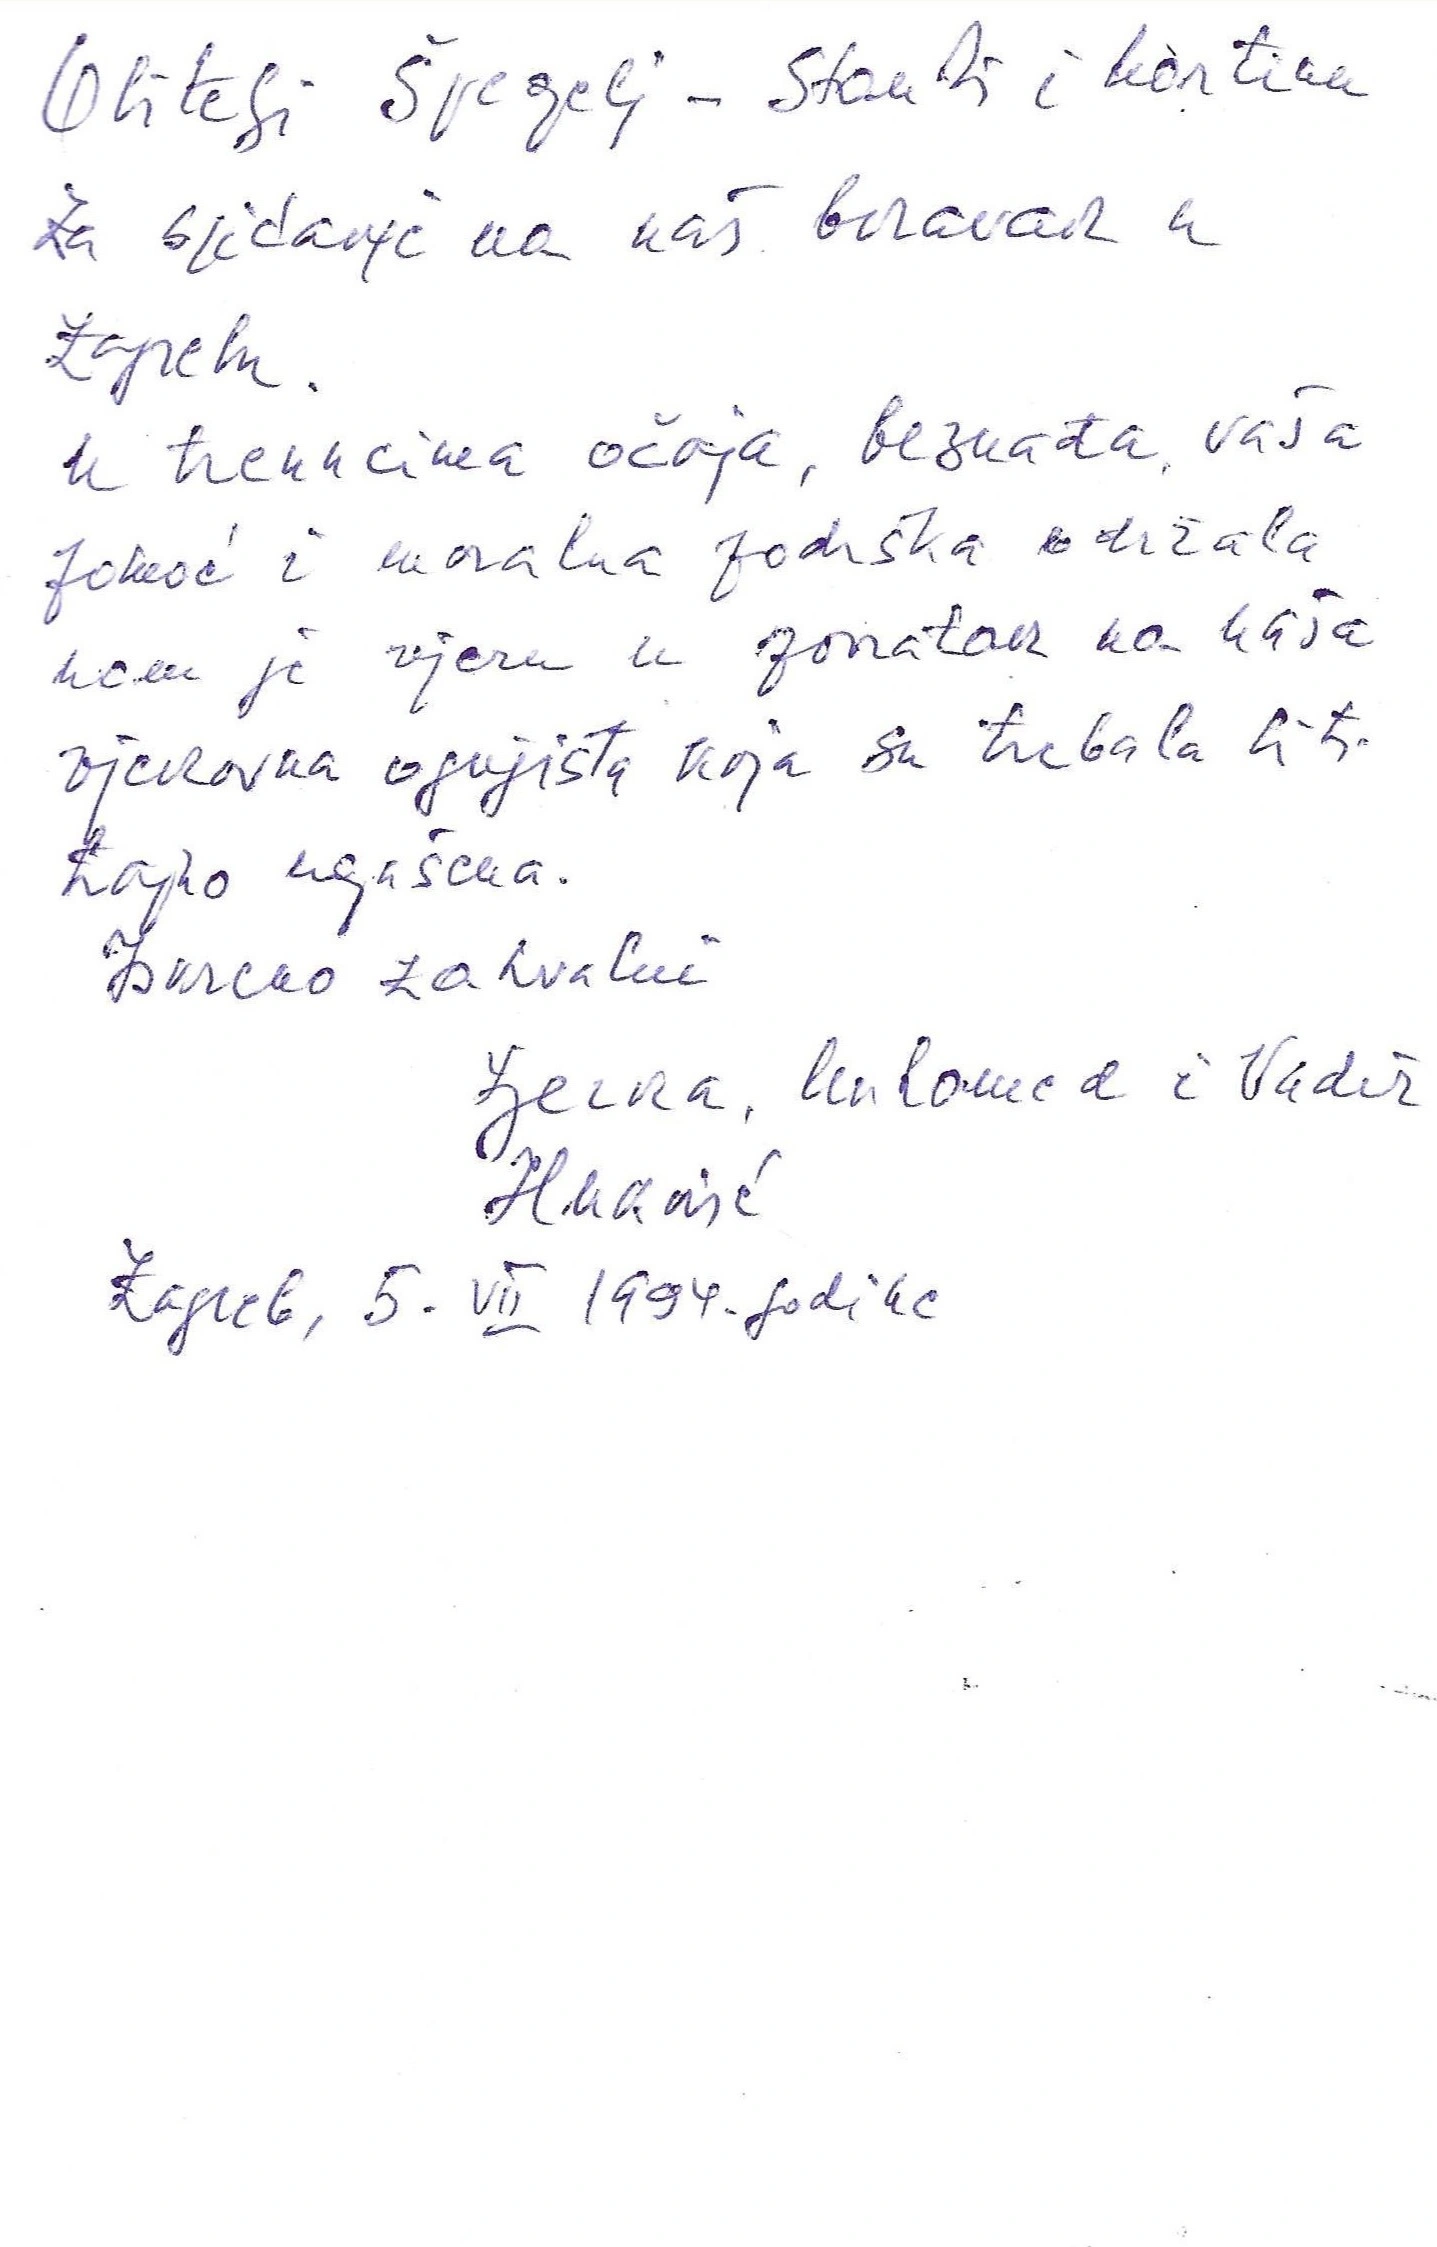 Obitelji Špegelj – Stanki i Martinu
Za sjećanje na naš boravak u
Zagrebu.
U trenucima očaja, beznađa, vaša
pomoć i moralna podrška održala
nam je vjeru u povratak na naša
vjekovna ognjišta koja su trebala biti
trajno ugašena.
Iskreno zahvalni
Zjezka, Muhamed i Nadir
Hukavić
Zagreb, 5. VII 1994. godine